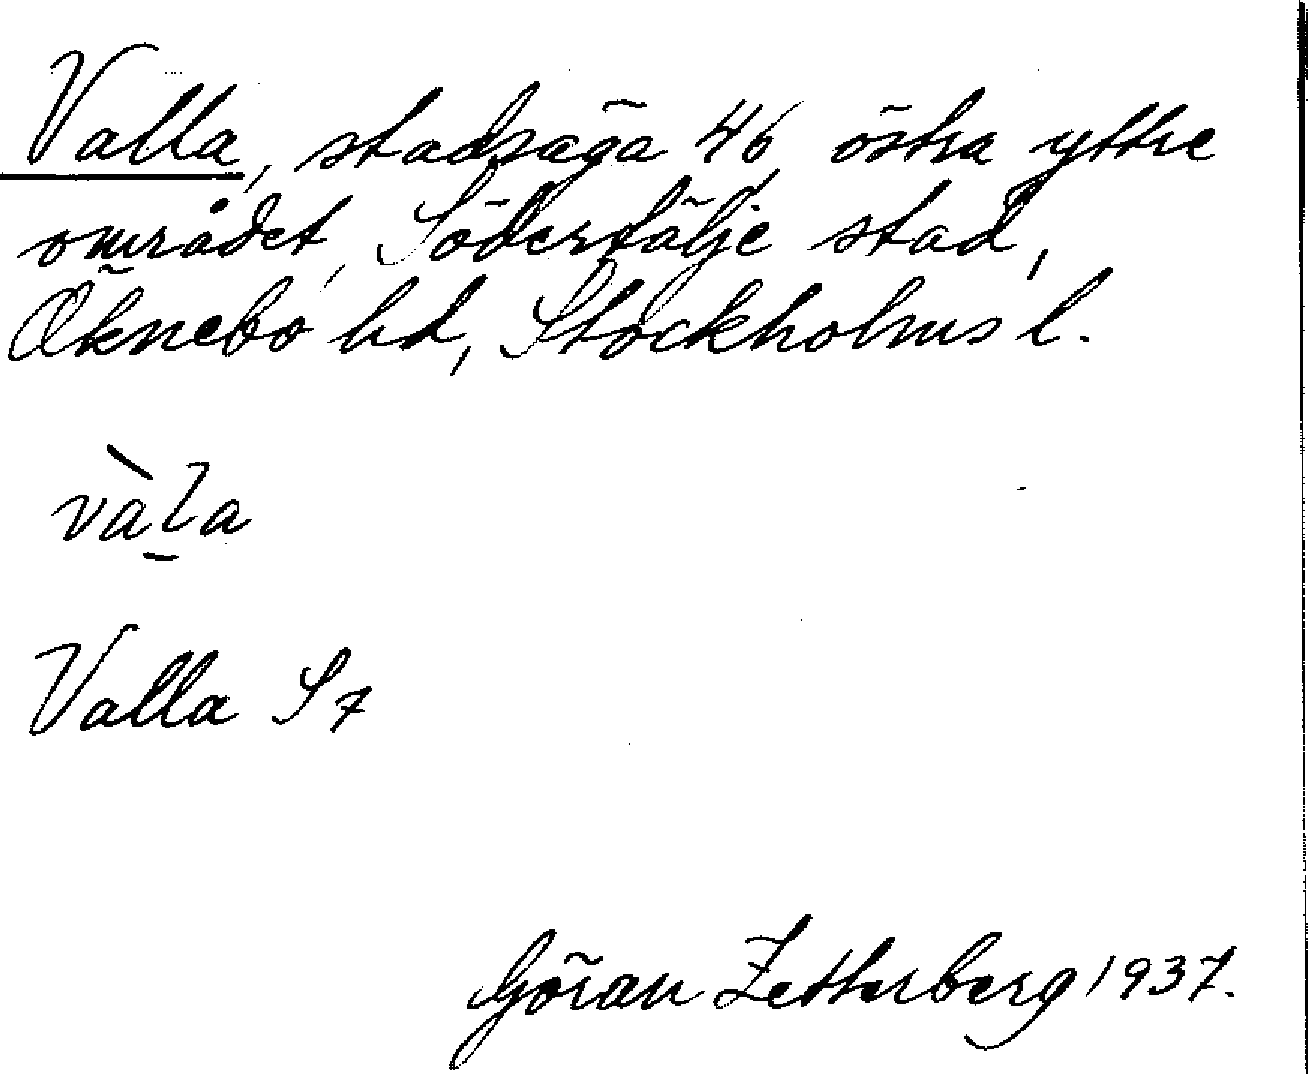 Valla, stadsäga 46 östra yttre
området, Södertälje stad,
Öknebo hd, Stockholms l.
vàl̠a
Valla S7
Göran Zetterberg 1937.